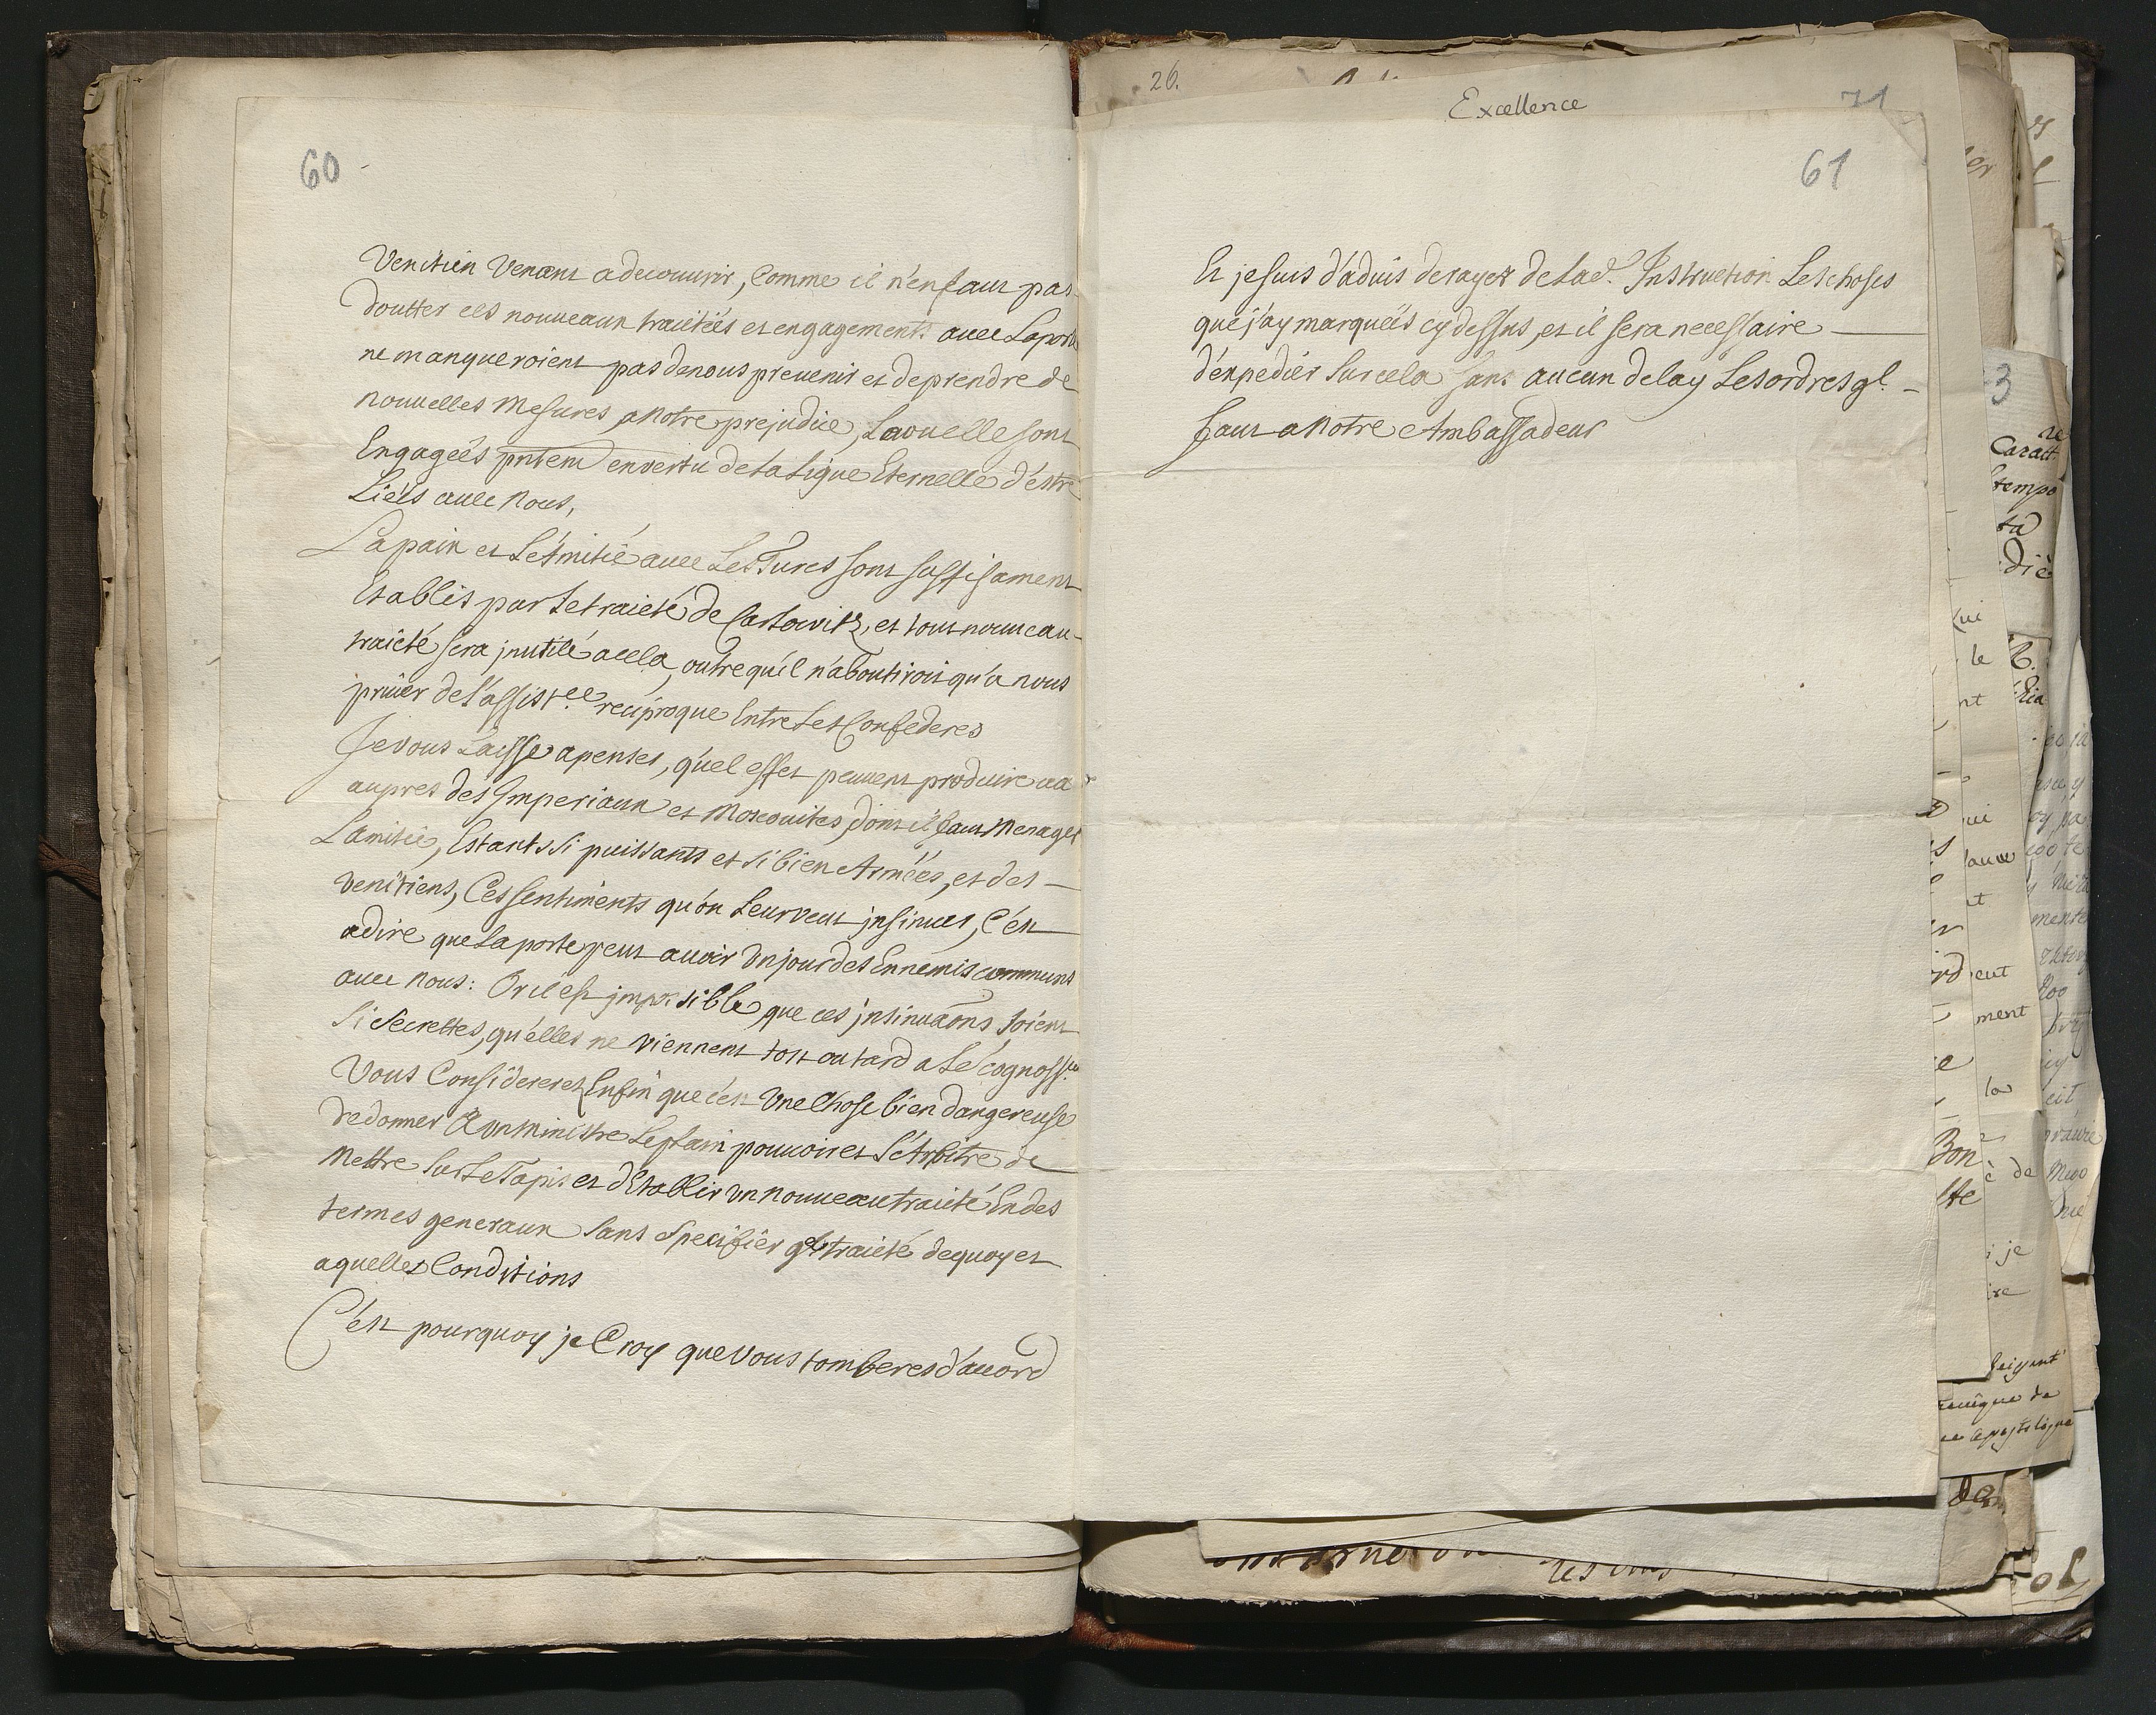 60
Venitien Venant a decouurir, Comme il n'en faut pas
doutter ces nouueaux traictéés et engagements auec Laporte
ne manqueroient pas de nous preuenir et de prendre de
nouuelles Mesures a Notre prejudice, Laquelle sont
Engageés pntem en vertu de la Ligue Eternelle d'éstre
Liéés auec Nous,
La paix et L'Amitié auec Les Turcs sont suffisament
Establis par Le traicté de Carlowitz, et tout nouueau
traicté sera jnutile a cela, outre qu'il n'aboutiroit qu'a nous
priuer de l'assist.ce reciproque Entre Les Confederes
Je vous Laisse a penser, qu'el effet peuuent produire
aupres des Imperiaux et Moscouites, dont il faut Menager
L'amitié, Estants si puissants et si bien Armées, et des —
venitiens, Ces sentiments qu'on Leur veut jnsinuer, C'est
a dire que La porte peut auoir Un jour des Ennemis communs
auec Nous: Or il est jmpossible que ces jnsinuaons soient
si Secrettes, qu'elles ne viennent tost ou tard a Le'cognoss.ce
Vous Considererez Enfin que c'est Vne Chose bien dangereuse
de donner A vn ministre Le plain pouuoir et L'Arbitre de
Mettre sur Le Tapis et d'Establir vn nouueau traicté En des
termes generaux sans Specifiér qel traicté de quoy et
a quelles Conditions
C'ést pourquoy je Croy que vous tomberes d'accord
26.
Excellence
71
61
Et je suis d'aduis de rayer de lad.e Instruction Les choses
que j'ay marqueés cy dessus, et il sera necessaire —
d'expediér sur cela sans aucun delay Les ordres ql. —
faut a Notre Ambassadeur